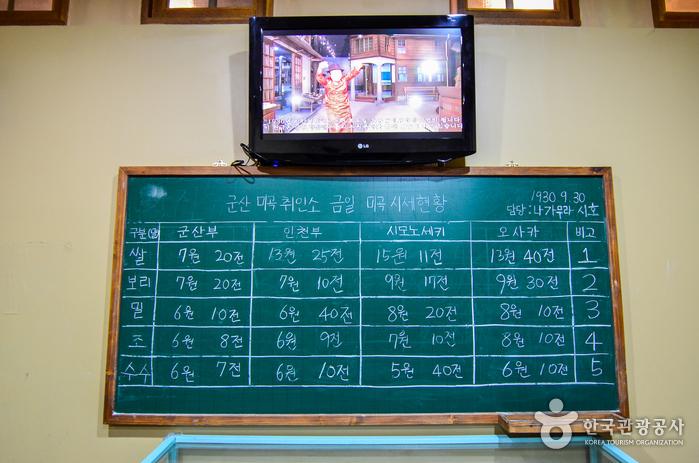 LG
군산 미곡 취인소 금일 미곡 시세현황
1930. 9. 30
담당:나가무라 시호
구분(일) 군산부 인천부 시모노세키 오사카 비고
쌀 7월 20전 13월 25전 15월 11전 13월 40전 1
보리 7월 20전 7월 10전 9월 17전 9월 30전 2
밀 6월 10전 6월 40전 8월 20전 8월 10전 3
조 6월 8전 6월 9전 7월 10전 8월 10전 4
수수 6월 7전 6월 10전 5월 40전 6월 10전 5
한국관광공사
KOREA TOURISM ORGANIZATION